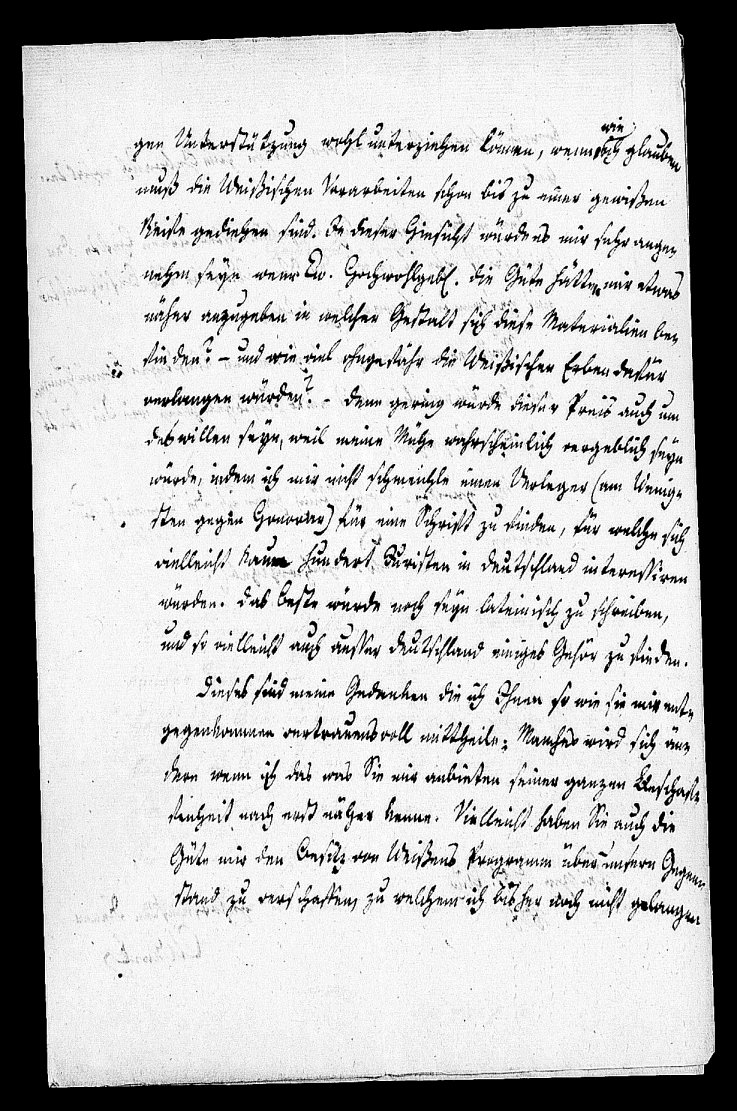 wie
gen Unterstützung wohl unterziehen können, wenn ich glauben
muß die Weißischen Vorarbeiten schon bis zu einer gewißen
Reife gediehen sind. In dieser Hinsicht würde es mir sehr ange-
nehm seyn wenn Ew. Hochwohlgeb. die Güte hätten mir etwas
näher anzugeben in welcher Gestalt sich diese Materialien be-
finden? – und wie viel ohngefähr die Weißischen Erben dafür
verlangen würden? – denn gering würde dieser Preis auch um
deswillen seyn, weil meine Mühe wahrscheinlich vergeblich seyn
würde, indem ich mir nicht schmeichle einen Verleger (am wenig-
sten gegen Honorar) für eine Schrift zu finden, für welche sich
vielleicht kaum hundert Juristen in Deutschland interessiren
würden. Das beste würde noch seyn lateinisch zu schreiben,
und so vielleicht auch ausser Deutschland einiges Gehör zu finden.
Dieses sind meine Gedanken die ich Ihnen so wie sie mir ent-
gegenkommen vertrauensvoll mittheile; Manches wird sich än-
dern wenn ich das was Sie mir anbieten seiner ganzen Beschaf-
fenheit nach erst näher kenne. Vielleicht haben Sie auch die
Güte mir den Besitz von Weißens Programm über unsern Gegen-
stand zu verschaffen, zu welchem ich bisher noch nicht gelangen